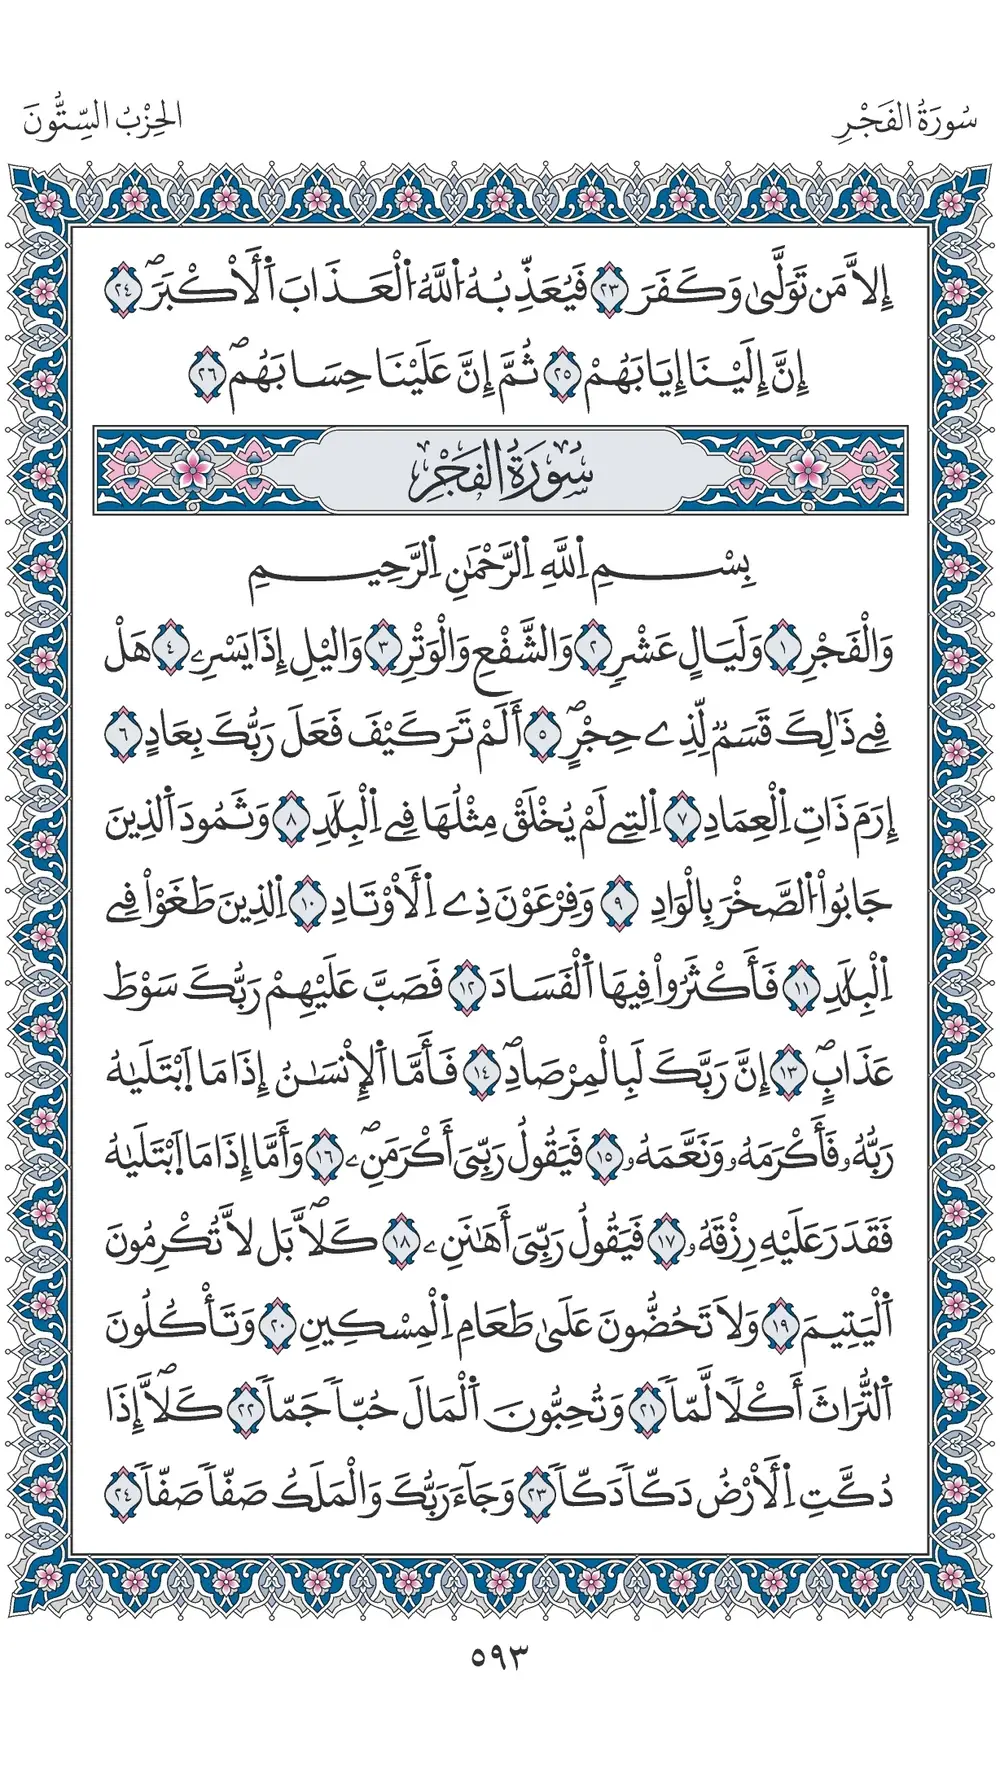 سُورَةُ الفَجْرِ
الحِزْبُ السِّتُّونَ
إِلاَّ مَن تَوَلَّىٰ وَكَفَرَ ٢٣ فَيُعَذِّبُهُ اُ۬للَّهُ اُ۬لْعَذَابَ اَ۬لَأَكْبَرَۖ ٢٤
إِنَّ إِلَيْنَا إِيَابَهُمْ ٢٥ ثُمَّ إِنَّ عَلَيْنَا حِسَابَهُمۖ ٢٦
سُورَةُ الفَجْرِ
بِسْمِ اِ۬للَّهِ اِ۬لرَّحْمَٰنِ اِ۬لرَّحِيمِ
وَالْفَجْرِ ١ وَلَيَالٍ عَشْرٖ ٢ وَالشَّفْعِ وَالْوَتْرِ ٣ وَاليْلِ إِذَا يَسْرِۦ ٤ هَلْ
فِے ذَٰلِكَ قَسَمٞ لِّذِے حِجْرٍۖ ٥ اَ۬لَمْ تَرَ كَيْفَ فَعَلَ رَبُّكَ بِعَادٍ ٦
إِرَمَ ذَاتِ اِ۬لْعِمَادِ ٧ اِ۬لتِے لَمْ يُخْلَقْ مِثْلُهَا فِے اِ۬لْبِلَٰدِ ٨ وَثَمُودَ اَ۬لذِينَ
جَابُواْ اُ۬لصَّخْرَ بِالْوَادِ ٩ وَفِرْعَوْنَ ذِے اِ۬لَاوْتَادِ ١٠ اِ۬لذِينَ طَغَوْاْ فِے
اِ۬لْبِلَٰدِ ١١ فَأَكْثَرُواْ فِيهَا اَ۬لْفَسَادَ ١٢ فَصَبَّ عَلَيْهِمْ رَبُّكَ سَوْطَ
عَذَابٍۖ ١٣ إِنَّ رَبَّكَ لَبِالْمِرْصَادِۖ ١٤ فَأَمَّا اَ۬لِانْسَٰنُ إِذَا مَا اَ۪بْتَلَيٰهُ
رَبُّهُۥ فَأَكْرَمَهُۥ وَنَعَّمَهُۥ ١٥ فَيَقُولُ رَبِّيَ أَكْرَمَنِۦۖ ١٦ وَأَمَّا إِذَا مَا اَ۪بْتَلَيٰهُ
فَقَدَرَ عَلَيْهِ رِزْقَهُۥ ١٧ فَيَقُولُ رَبِّيَ أَهَٰنَنِۦ ١٨ كَلاَّۖ بَل لاَّ تُكْرِمُونَ
اَ۬لْيَتِيمَ ١٩ وَلاَ تَحُضُّونَ عَلَىٰ طَعَامِ اِ۬لْمِسْكِينِ ٢٠ وَتَأْكُلُونَ
اَ۬لتُّرَاثَ أَكْلاٗ لَّمّاٗ ٢١ وَتُحِبُّونَ اَ۬لْمَالَ حُبّاٗ جَمّاٗ ٢٢ كَلاَّۖ إِذَا
دُكَّتِ اِ۬لَارْضُ دَكّاٗ دَكّاٗ ٢٣ وَجَآءَ رَبُّكَ وَالْمَلَكُ صَفّاٗ صَفّاٗ ٢٤
٥٩٣